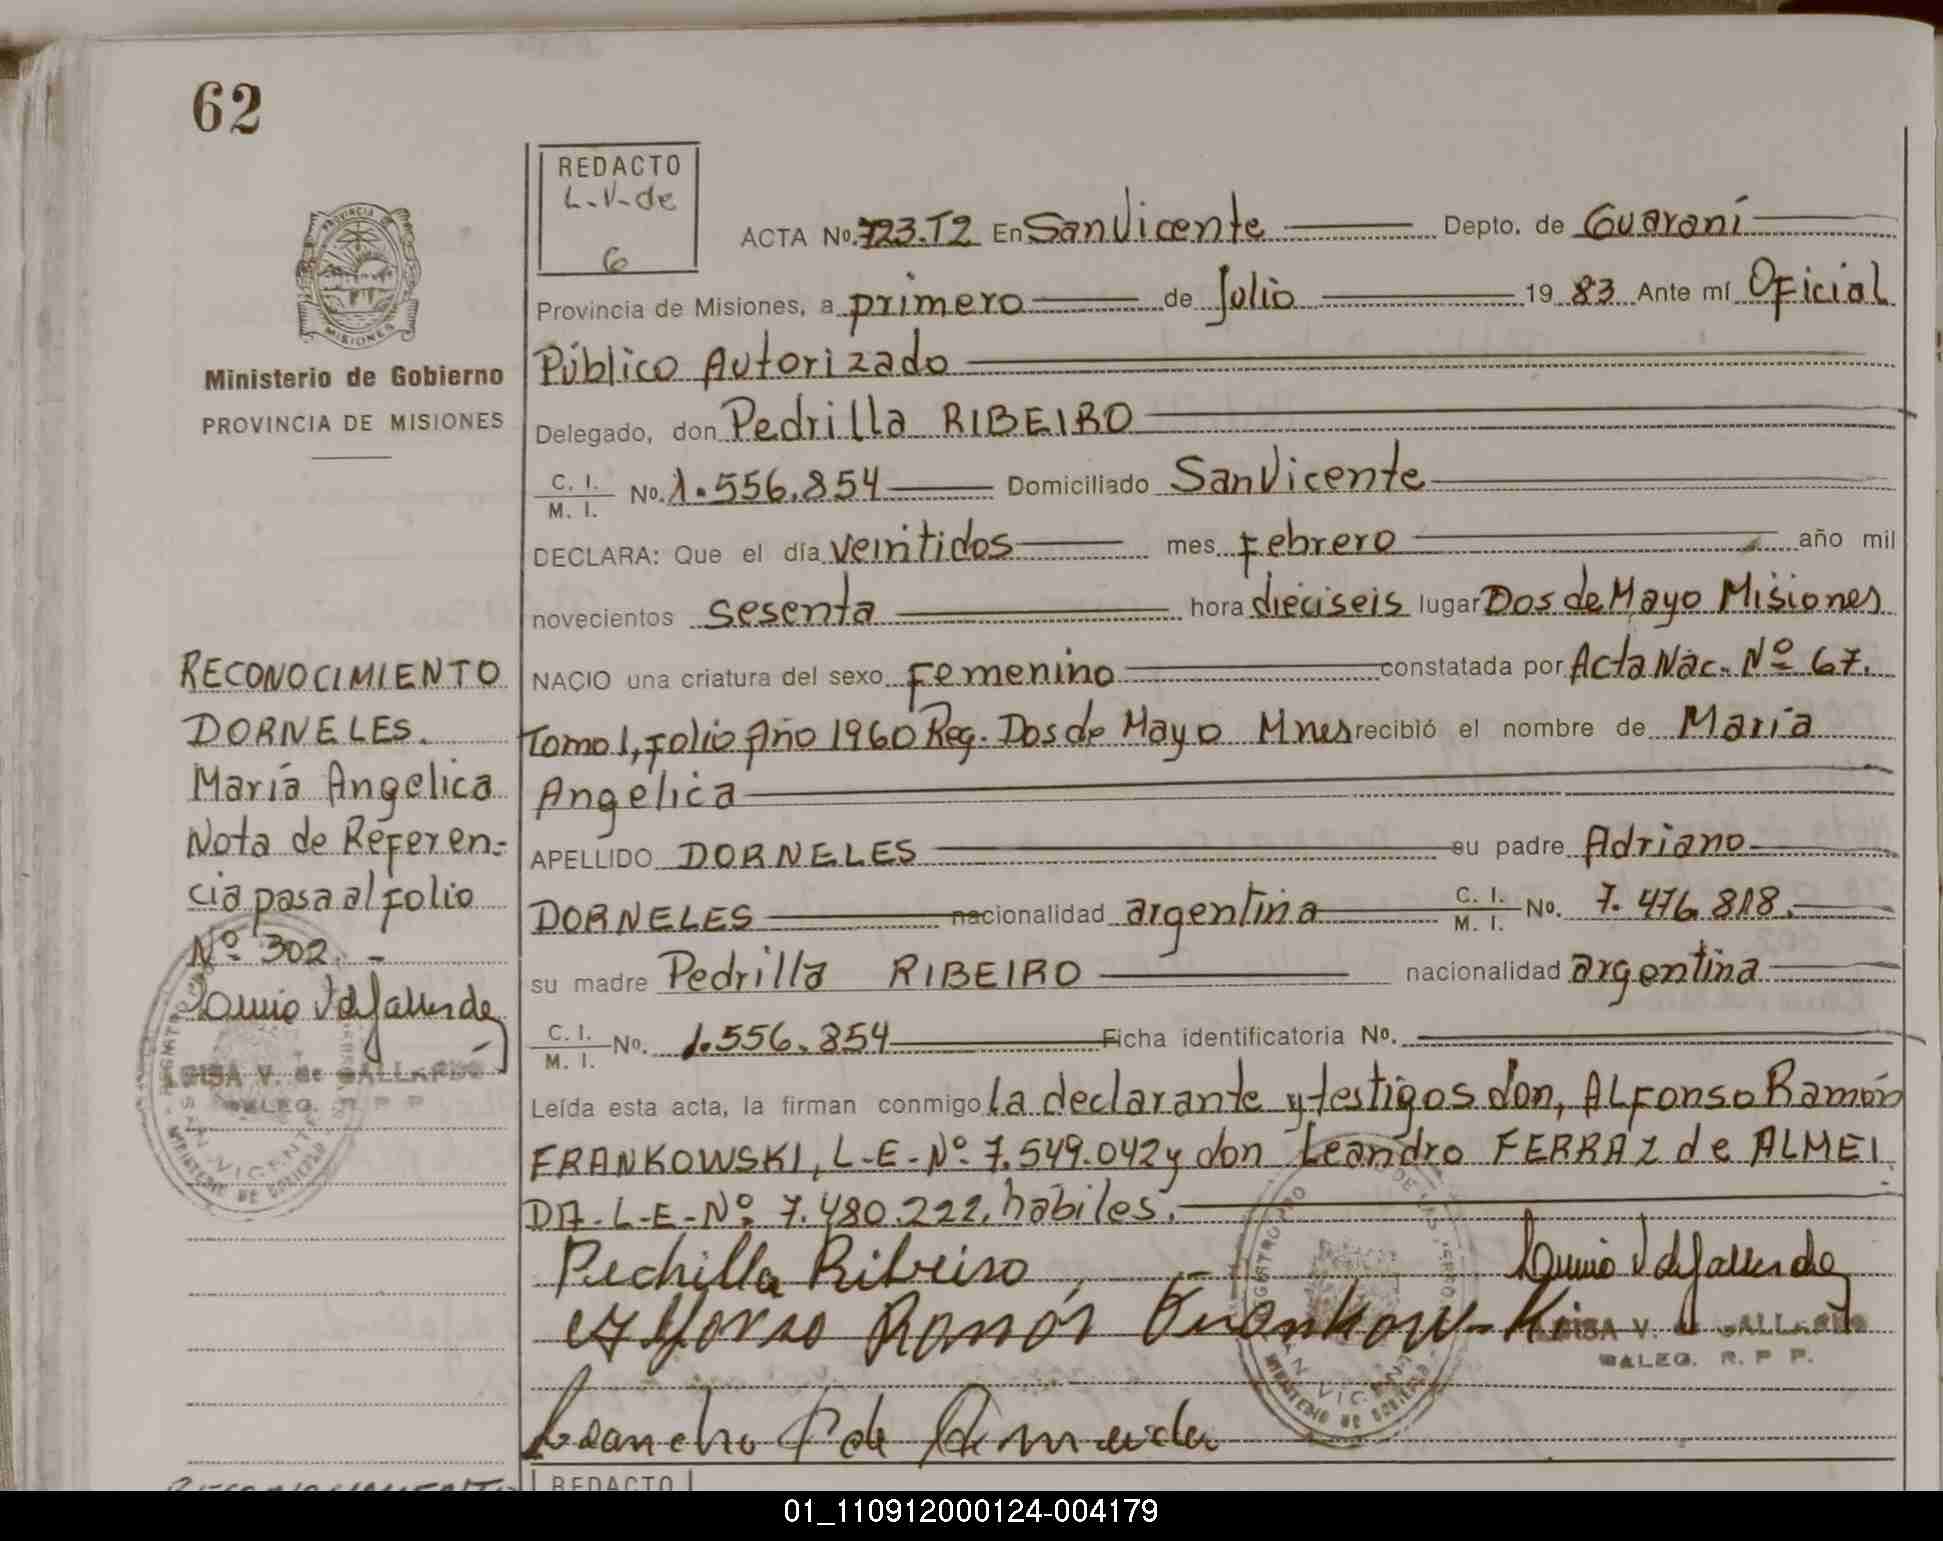 62
REDACTO
L-V-de
6
ACTA No. 723.T2 En San Vicente Depto. de Guaraní
Provincia de Misiones, a primero de Julio 19 83 Ante mí Oficial
Público Autorizado
Delegado, don Pedrilla RIBEIRO
C. I.
M. I. No. 1.556.854 Domiciliado San Vicente
DECLARA: Que el día veintidos mes Febrero año mil
novecientos sesenta hora dieciseis lugar Dos de Mayo Misiones
NACIO una criatura del sexo Femenino constatada por Acta Nac. Nº 67.
Tomo 1, Folio Año 1960 Reg. Dos de Mayo Mnes recibió el nombre de María
Angelica
APELLIDO DORNELES su padre Adriano
DORNELES nacionalidad argentina C. I. M. I. No. 7.476.818.
su madre Pedrilla RIBEIRO nacionalidad argentina
C. I.
M. I. No. 1.556.854 Ficha identificatoria No.
Leída esta acta, la firman conmigo la declarante y testigos don, ALFonso Ramón
FRANKOWSKI, L-E-Nº 7.549.042 y don Leandro FERRAZ de ALMEI
DA-L-E-Nº 7.480.222, habiles.
Pedrilla Ribeiro
Alfonso Ramón Frankow-Ki
LUISA V. de GALLARDO
DALEG. R. P P.
PROVINCIA DE
MISIONES
Ministerio de Gobierno
PROVINCIA DE MISIONES
RECONOCIMIENTO
DORNELES.
María Angelica
Nota de Referen-
cia pasa al Folio
Nº 302.-
LUISA V. de GALLARDO
DALEG. R P P
SAN VICENTE
REDACTO
01_110912000124-004179